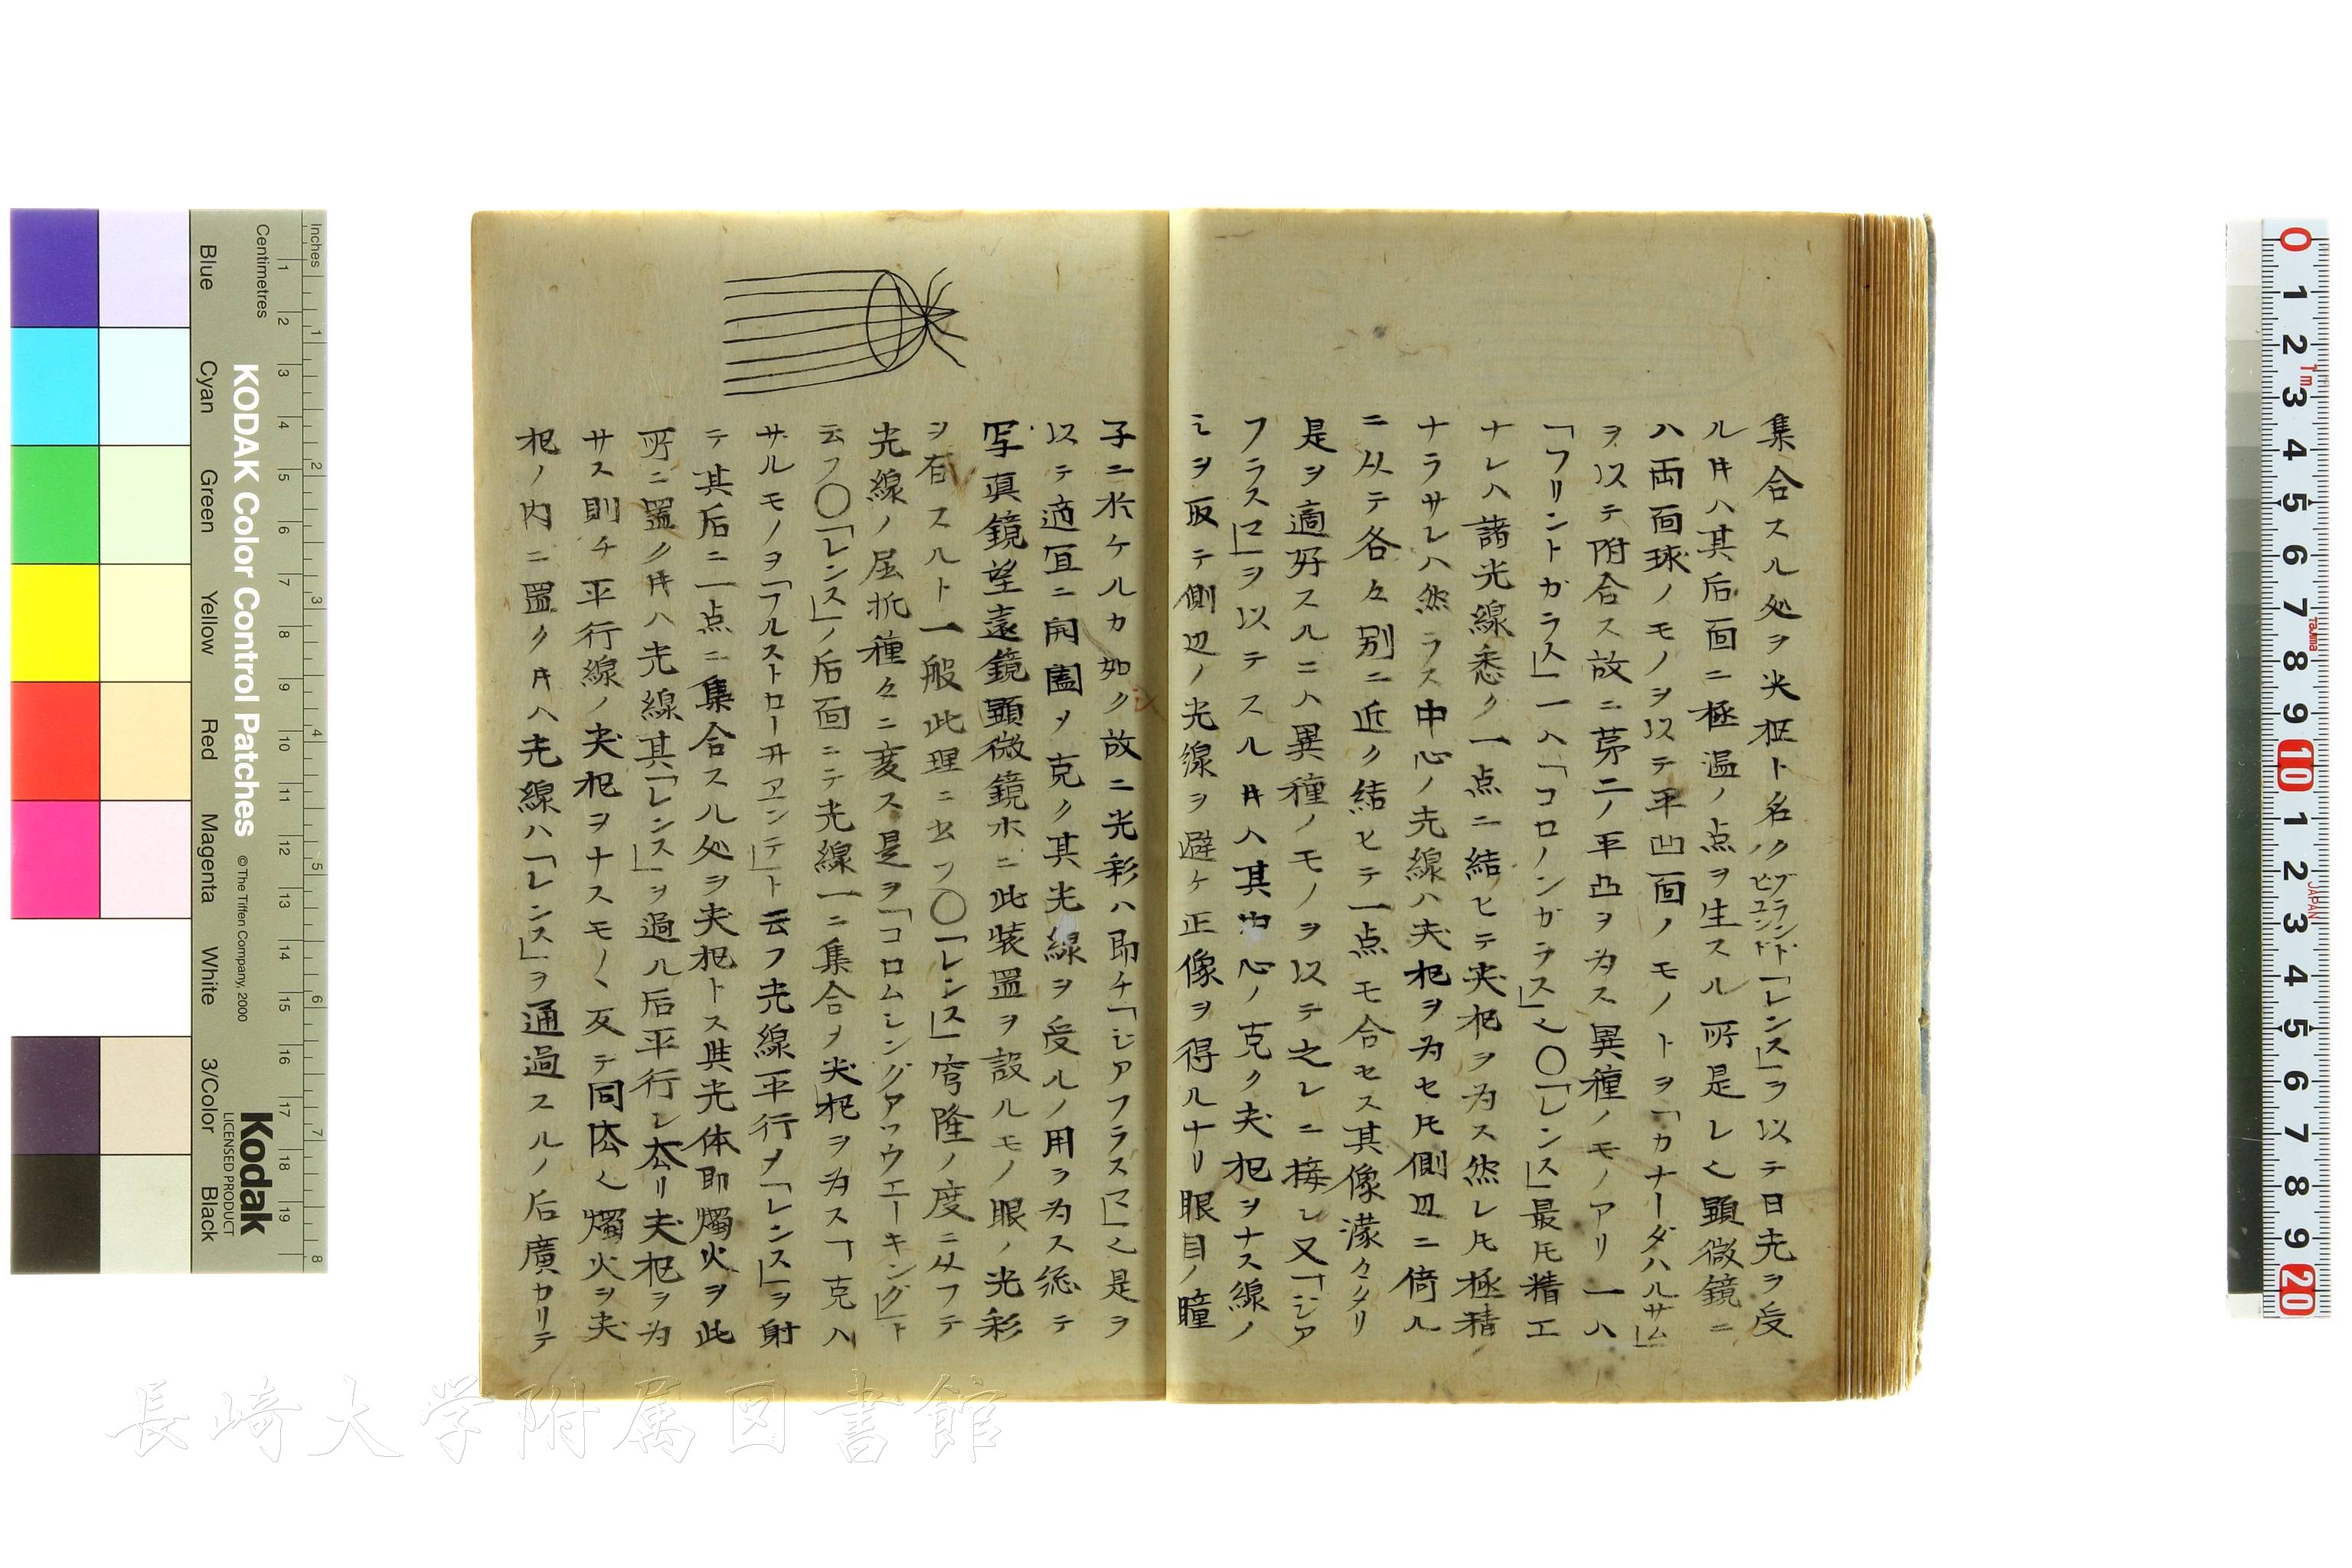 集合スル処ヲ尖柾ト名ク ブランド ヒユンド 「レンス」ヲ以テ日光ヲ受
ル𪜈ハ其后面ニ極温ノ点ヲ生スル所是レ也顕微鏡ニ
ハ両面球ノモノヲ以テ平凹面ノモノトヲ「カナーダハルサム」
ヲ以テ附合ス故ニ苐二ノ平凸ヲ為ス異種ノモノアリ一ハ
「フリントガラス」一ハ「コロノンガラス」也〇「レンス」最モ精工
ナレハ諸光線悉ク一点ニ結ヒテ尖杷ヲ為ス然レ𪜈極精
ナラサレハ然ラス中心ノ光線ハ尖杷ヲ為セ𪜈側辺ニ倚ル
ニ从テ各々別ニ近ク結ヒテ一点モ合セス其像濛々タリ
是ヲ適好スルニハ異種ノモノヲ以テ之レニ接シ又「ジア
フラスマ」ヲ以テスル𪜈ハ其中心ノ克ク尖杷ヲナス線ノ
ミヲ取テ側辺ノ光線ヲ避ケ正像ヲ得ルナリ眼目ノ瞳
子ニ於ケルカ如ク故ニ光彩ハ即チ「ジアフラスマ」也是ヲ
シ
以テ適宜ニ開闔ヲ克ク其光線ヲ受ルノ用ヲ為ス総テ
写真鏡望遠鏡顕微鏡ホニ此装置ヲ設ルモノ眼ノ光彩
ヲ有スルト一般此理ニ出ツ〇「レンス」穹隆ノ度ニ从フテ
光線ノ屈折種々ニ変ス是ヲ「コロムシングアフウエーキング」ト
云フ〇「レンス」ノ后面ニテ光線一ニ集合ヲ尖杷ヲ為ス「克ハ
サルモノヲ「フルストローヰヱンテ」ト云フ光線平行ヲ「レンス」ヲ射
テ其后ニ一点ニ集合スル処ヲ尖杷トス其光体即燭火ヲ此
所ニ置ク𪜈ハ光線其「レンス」ヲ過ル后平行シ
サス則チ平行線ノ尖杷ヲナスモノ也反テ同
杷ノ内ニ置ク𪜈ハ光線ハ「レンス」ヲ通過スルノ后廣カリテ
Inches
Centimetres
KODAK Color Control Patches
© The Tiffen Company, 2000
Kodak
LICENSED PRODUCT
Blue
Cyan
Green
Yellow
Red
Magenta
White
3/Color
Black
長崎大学附属図書館